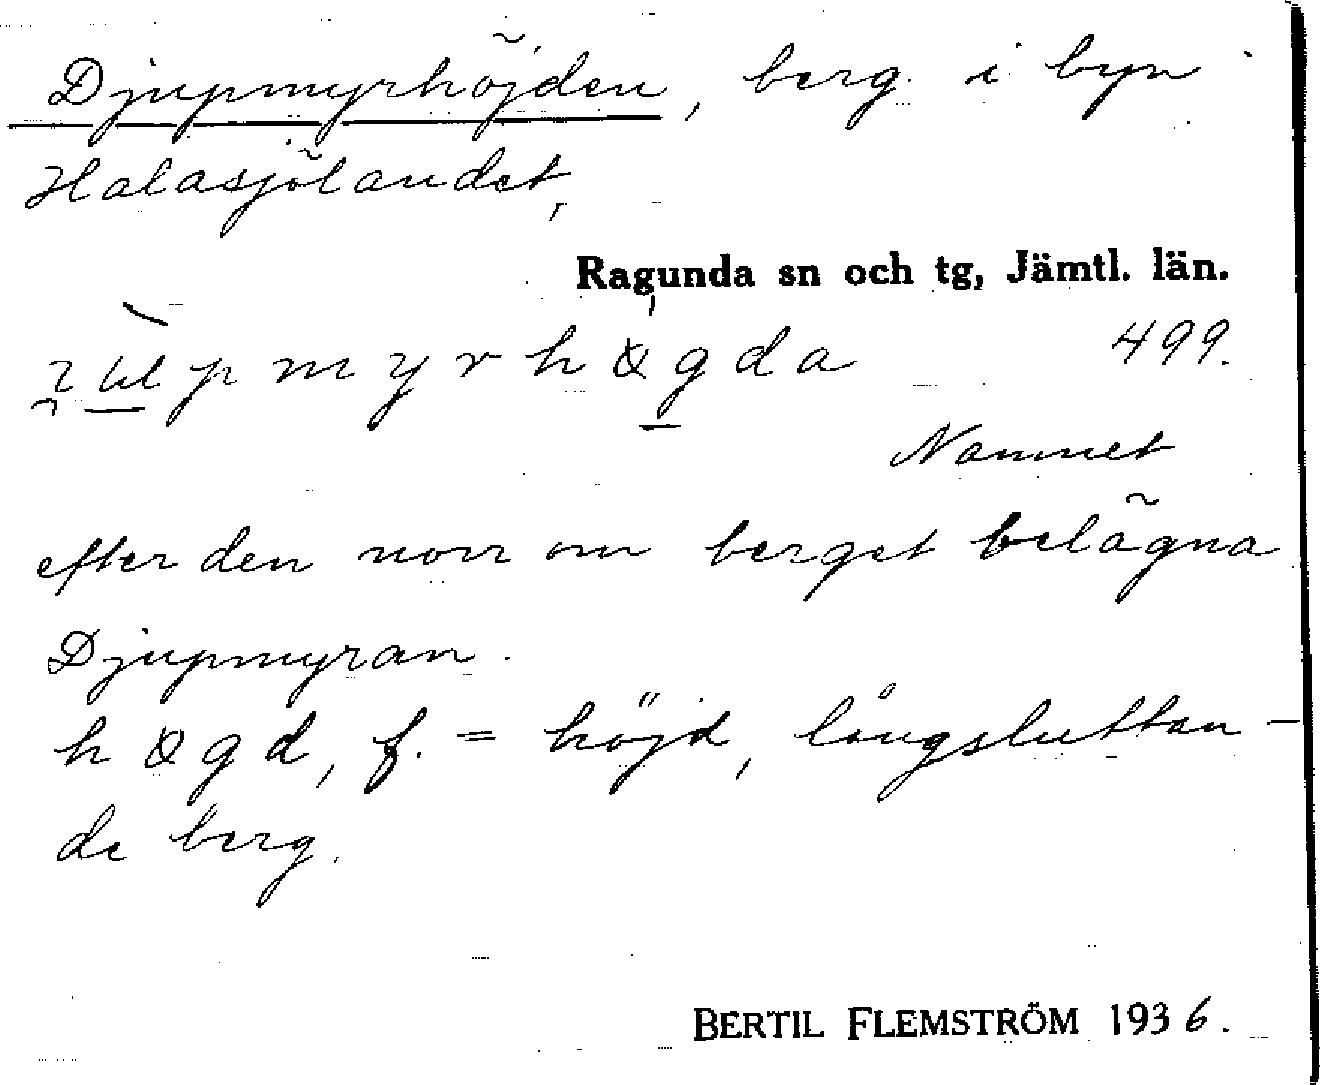 Djupmyrhöjden, berg i byn
Halasjölandet,
Ragunda sn och tg, Jämtl. län.
499.
Namnet
efter den norr om berget belägna
Djupmyran.
f. = höjd, långsluttan-
de berg.
BERTIL FLEMSTRÖM 1936.